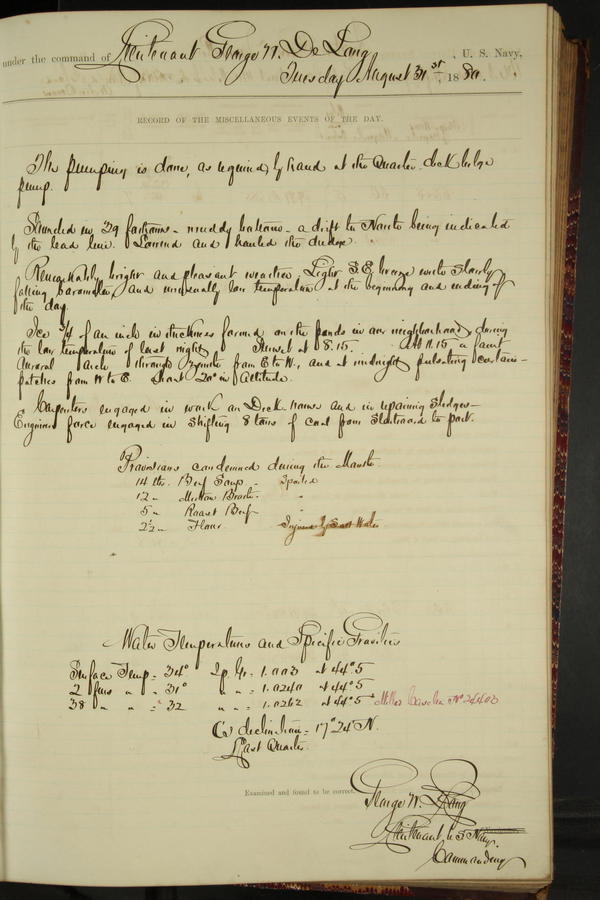 under the command of Lieutenant George W. De Long, U. S. Navy,
Tuesday August 31st, 1880.
RECORD OF THE MISCELLANEOUS EVENTS OF THE DAY.
The pumping is done, as required by hand at the Quarter deck bilge
pump.
Sounded in 39 fathoms - muddy bottom - a drift to North being indicated
by the lead line. Lowered and hauled the dredge.
Remarkably bright and pleasant weather, Light S.E. breeze with slowly
falling barometer, and unusually low temperature at the beginning and ending of
the day.
Ice 3/4 of an inch in thickness formed on the ponds in our neighborhood during
the low temperature of last night. Sunset at 8.15. At 11.15 a faint
Auroral arch through Zenith from E to W., and at midnight pulsating curtain-
patches from W to E. about 20° in altitude.
Carpenters engaged in work on Deck house and in repairing sledges -
Engineers force engaged in shifting 8 tons of coal from starboard to port.
Provisions condemned during the Month.
14 lbs. Beef Soup - Spoiled
12 " Mutton Broth - "
5 " Roast Beef - "
22 " Flour - Injured by Salt Water
Water Temperatures and Specific Gravities
Surface Temp = 34° Sp. Gr. = 1.003 at 44°.5
2 fms " " = 31° " " = 1.0240 at 44°.5
38 " " " = 32 " " = 1.0262 at 44°.5 Miller Casella No
declination = 17° 24' N.
Last Quarter.
Examined and found to be correct.
George W. De Long
Lieutenant U.S. Navy.
Commanding